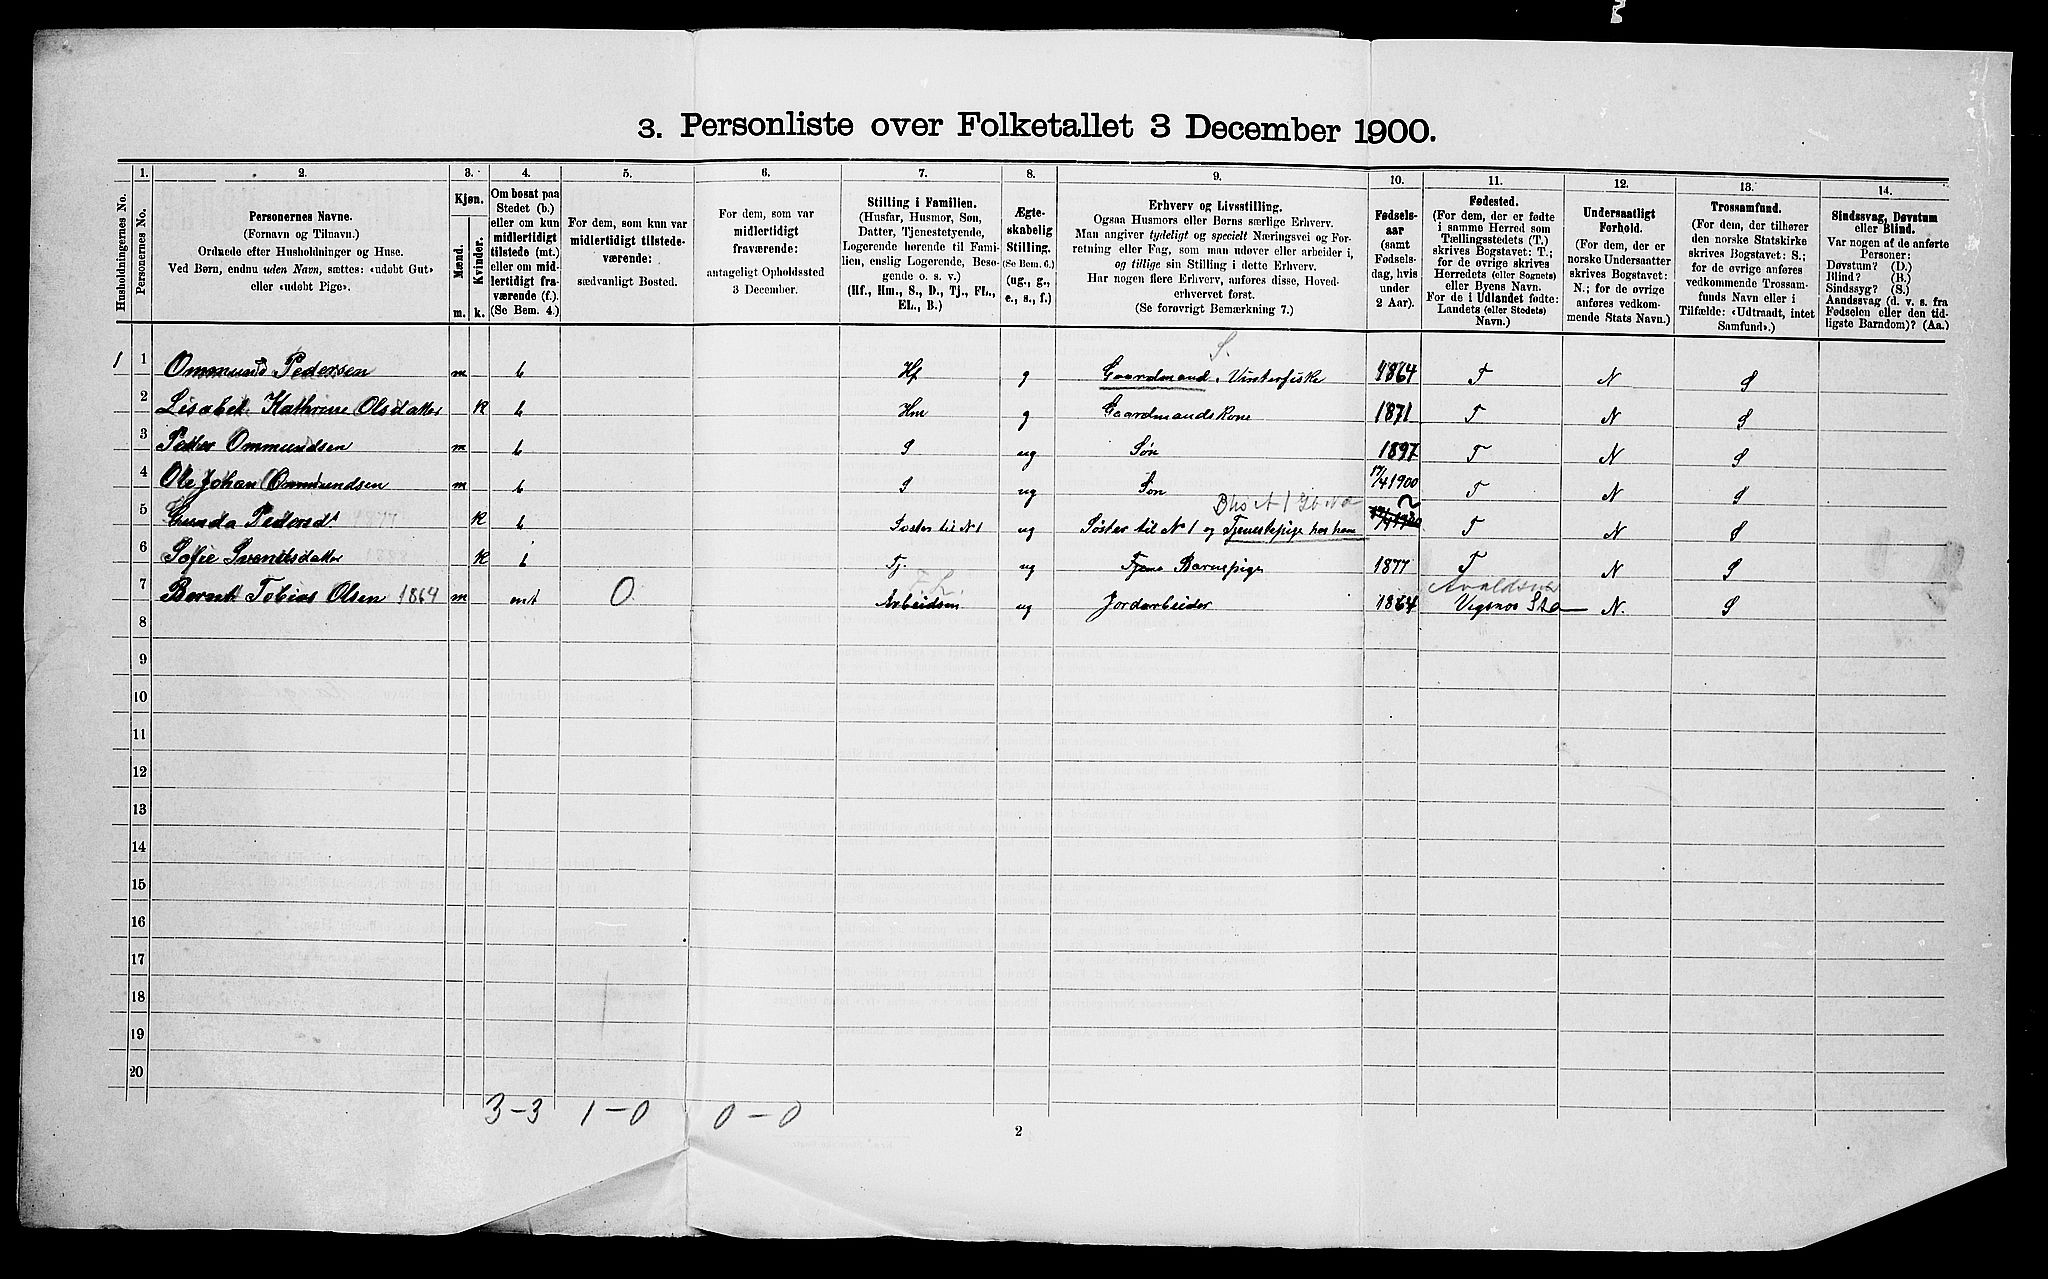 3. Personliste over Folketallet 3 December 1900.
Husholdningernes No.
1.
Personernes No.
2.
Personernes Navne.
(Fornavn og Tilnavn.)
Ordnede efter Husholdninger og Huse.
Ved Børn, endnu uden Navn, sættes: «udøbt Gut»
eller «udøbt Pige».
3.
Kjøn.
Mænd.
m.
Kvinder.
k.
4.
Om bosat paa
Stedet (b.)
eller om kun
midlertidigt
tilstede (mt.)
eller om mid-
lertidigt fra-
værende (f.)
(Se Bem. 4.)
5.
For dem, som kun var
midlertidigt tilstede-
værende:
sædvanligt Bosted.
6.
For dem, som var
midlertidigt
fraværende:
antageligt Opholdssted
3 December.
7.
Stilling i Familien.
(Husfar, Husmor, Søn,
Datter, Tjenestetyende,
Logerende hørende til Fami-
lien, enslig Logerende, Besø-
gende o. s. v.)
(Hf., Hm., S., D., Tj., FL.,
EL., B.)
8.
Ægte-
skabelig
Stilling.
(Se Bem. 6.)
(ug., g.,
e., s., f.)
9.
Erhverv og Livsstilling.
Ogsaa Husmors eller Børns særlige Erhverv.
Man angiver tydeligt og specielt Næringsvei og For-
retning eller Fag, som man udøver eller arbeider i,
og tillige sin Stilling i dette Erhverv.
Har nogen flere Erhverv, anføres disse, Hoved-
erhvervet først.
(Se forøvrigt Bemærkning 7.)
10.
Fødsels-
aar
(samt
Fødsels-
dag, hvis
under
2 Aar).
11.
Fødested.
(For dem, der er fødte
i samme Herred som
Tællingsstedets (T.)
skrives Bogstavet: T.;
for de øvrige skrives
Herredets (eller Sognets)
eller Byens Navn.
For de i Udlandet fødte:
Landets (eller Stedets)
Navn.)
12.
Undersaatligt
Forhold.
(For dem, der er
norske Undersaatter
skrives Bogstavet:
N.; for de øvrige
anføres vedkom-
mende Stats Navn.)
13.
Trossamfund.
(For dem, der tilhører
den norske Statskirke
skrives Bogstavet: S.;
for de øvrige anføres
vedkommende Trossam-
funds Navn eller i
Tilfælde: «Udtraadt, intet
Samfund».)
14.
Sindssvag, Døvstum
eller Blind.
Var nogen af de anførte
Personer:
Døvstum? (D.)
Blind? (B.)
Sindssyg? (S.)
Aandssvag (d. v. s. fra
Fødselen eller den tid-
ligste Barndom)? (Aa.)
S.
1 1 Ommund Pedersen m b Hf g Gaardmand, Vinterfiske 1864 T N S
2 Lisabet Kathrine Olsdatter K b Hm g Gaardmandskone 1871 T N S
3 Peder Ommundsen m b S ug Søn 1897 T N S
4 Ole Johan Ommundsen m b S ug Søn 17/4 1900 T N S
5 Gunda Pedersdt 1877 K b Søster til N 1 ug Søster til N 1 og Tjenestepige hos ham T N S
6 Sofie Svendsdatter K b Tj. ug Barnepige 1877 T N S
F.L. Avaldsnes
7 Bernt Tobias Olsen 1864 m mt 0 Arbeidsm ug Jordarbeider 1864 Vigsnes N. S
8
9
10
11
12
13
14
15
16
17
18
19
20
3-3 1-0 0-0
2